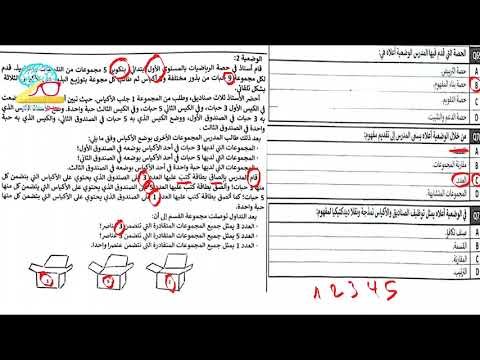 الوضعية 2:
قام أستاذ في حصة الرياضيات بالمستوى الأول ابتدائي بتكوين 5 مجموعات من
لكل مجموعة 9 حبات من بذور مختلفة و أكياس ثم طالب كل مجموعة بتوزيع الثلاثة
بشكل تلقائي.
أحضر الأستاذ ثلاث صناديق، وطلب من المجموعة 1 جلب الأكياس، حيث
في الكيس الأول 3 حبات، وفي الكيس الثاني 5 حبات، وفي الكيس الثالث حبة واحدة.
به 3 حبات في الصندوق الأول، والكيس الذي به 5 حبات في الصندوق الثاني، والكيس الذي به
حبة واحدة في الصندوق الثالث.
بعد ذلك طالب المدرس المجموعات الأخرى بوضع الأكياس وفق ما يلي:
- المجموعات التي لديها 3 حبات في أحد الأكياس بوضعه في الصندوق الأول.
- المجموعات التي لديها 5 حبات في أحد الأكياس بوضعه في الصندوق الثاني.
- المجموعات التي لديها حبة واحدة في أحد الأكياس بوضعه في الصندوق الثالث.
قام المدرس بإلصاق بطاقة كتب عليها العدد 3 على الصندوق الذي يحتوي على الأكياس التي يتضمن كل
منها 3 حبات؛ وألصق بطاقة كتب عليها العدد 5 على الصندوق الذي يحتوي على الأكياس التي يتضمن كل منها
5 حبات؛ كما ألصق بطاقة كتب عليها العدد 1 على الصندوق الذي يحتوي على الأكياس التي يتضمن كل منها
حبة واحدة.
بعد التداول توصلت مجموعة القسم إلى أن:
- العدد 3 يمثل جميع المجموعات المتقادرة التي تتضمن 3 عناصر؛
- العدد 5 يمثل جميع المجموعات المتقادرة التي تتضمن 5 عناصر؛
- العدد 1 يمثل جميع المجموعات المتقادرة التي تتضمن عنصرا واحدا.
الحصة التي قدم فيها المدرس الوضعية أعلاه هي:
A حصة الترييض.
B حصة بناء المفهوم.
C حصة التقويم.
D حصة الدعم والتثبيت.
من خلال الوضعية أعلاه يسعى المدرس إلى تقديم مفهوم:
A
B مقارنة المجموعات.
C العدد.
D المجموعات المتشابهة.
في الوضعية أعلاه يمثل توظيف الصناديق والأكياس نمذجة ونقلا ديداكتيكيا لمفهوم:
A صنف تكافؤ.
B القسمة.
C المقارنة.
D الترتيب.
1 2 3 4 5